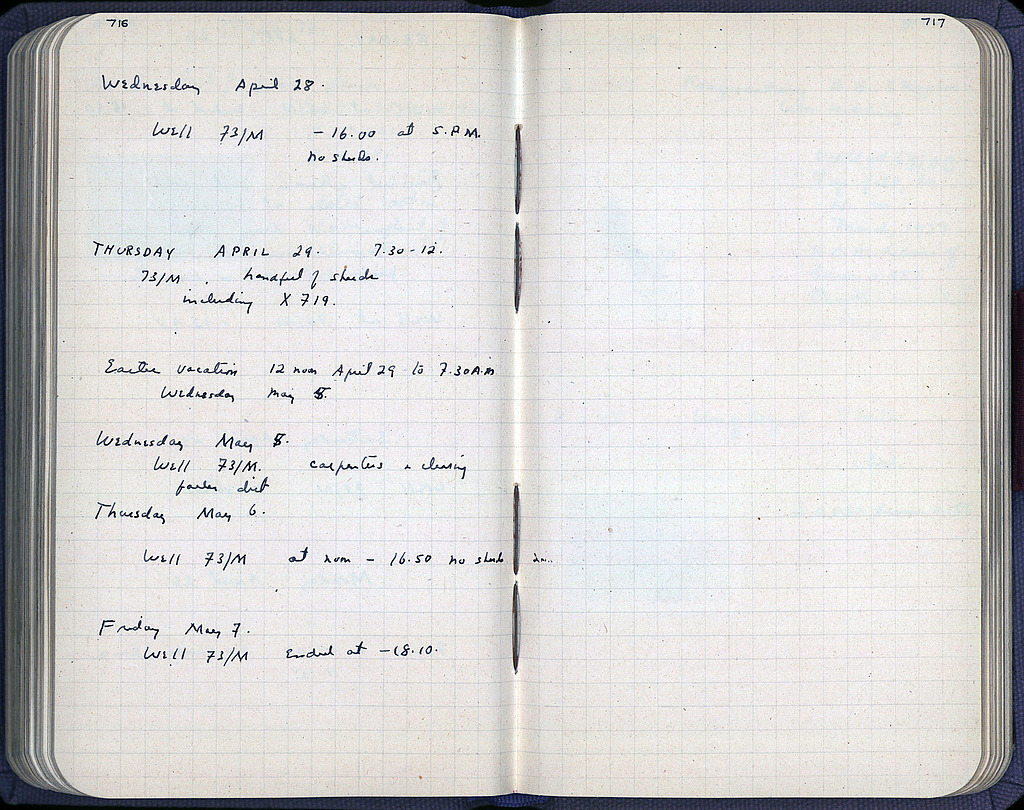 716
717
Wednesday April 28.
Well 73/M - 16.00 at 5.P.M.
no sherds.
THURSDAY APRIL 29. 7.30-12.
73/M. handful of sherds
including X 719.
Easter vacation 12 noon April 29 to 7.30 A.M
Wednesday May 5.
Wednesday May 5.
Well 73/M. carpenters clearing
fallen dirt
Thursday May 6.
Well 73/M at noon - 16.50 no sherds
Friday May 7.
Well 73/M Ended at -18.10.